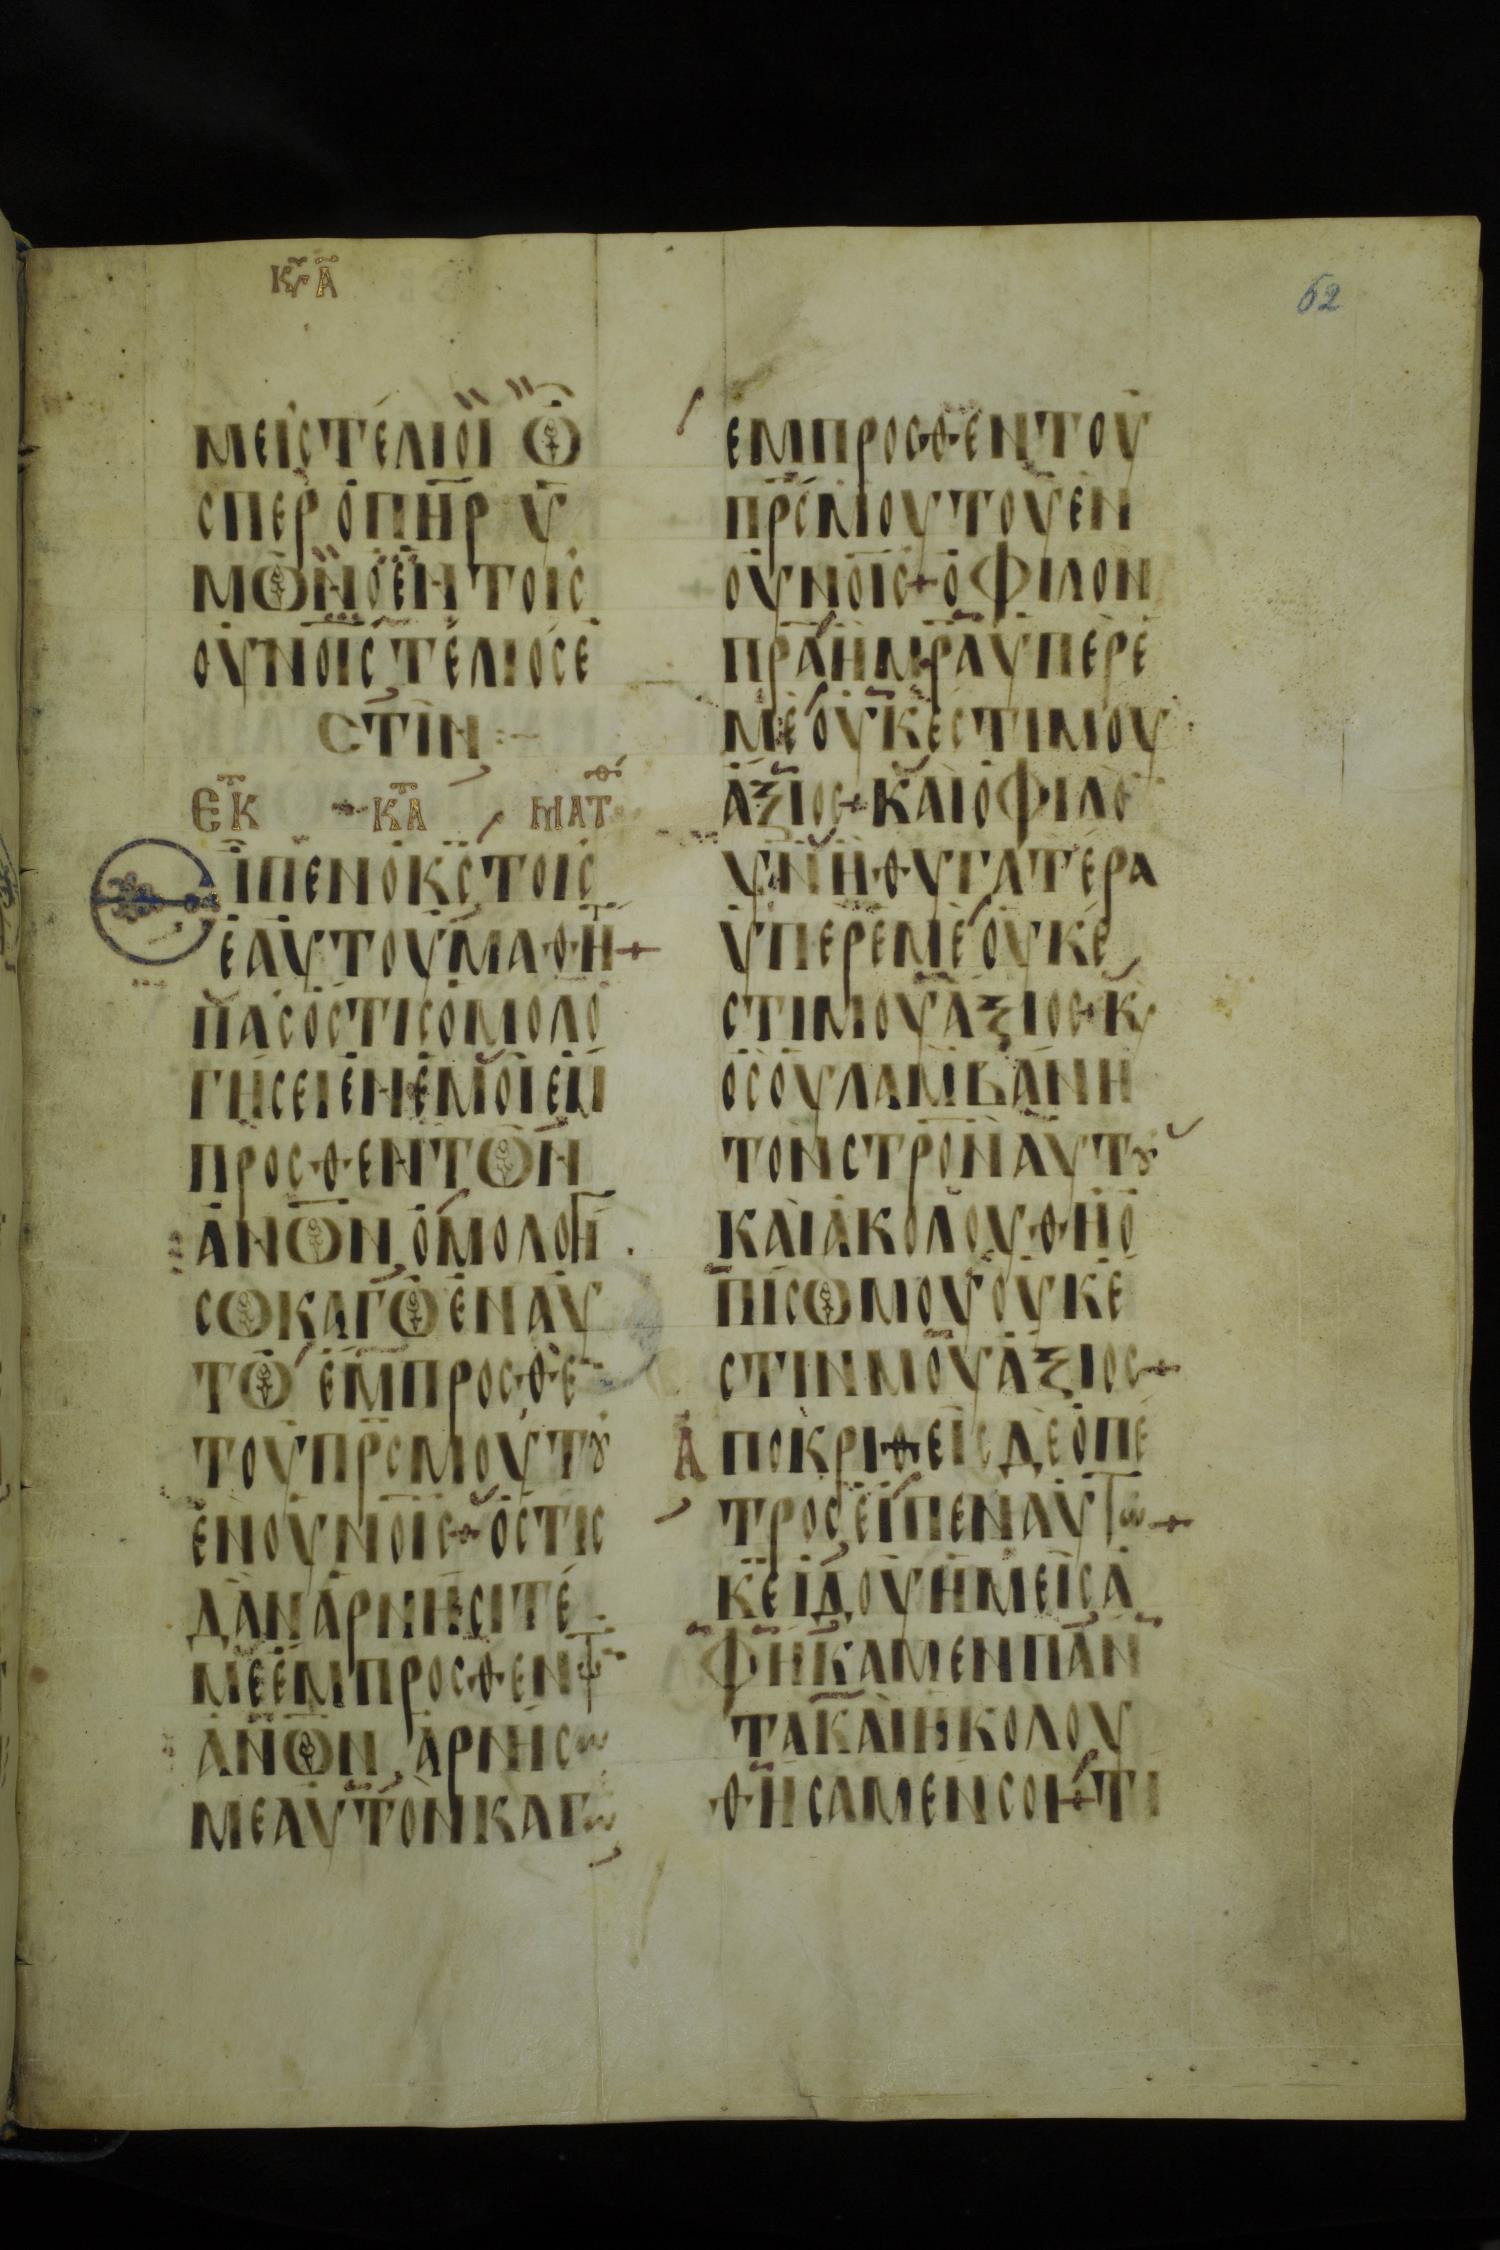 ΚΥ Α
62
ΜΕΙΣΤΕΛΙΟΙ Ω
ΣΠΕΡ ΟΠΗΡ Υ
ΜΩΝΟΕΝΤΟΙΣ
ΟΥΝΟΙΣ ΤΕΛΙΟΣΕ
ΣΤΙΝ :–
ΕΚ ΚΑΤΑ ΜΑΤΘ
ΕΙΠΕΝΟΚΣΤΟΙΣ
ΕΑΥΤΟΥΜΑΘΗΤ+
ΠΑΣΟΣΤΙΣΟΜΟΛΟ
ΓΗΣΕΙΕΝΕΜΟΙΕΜ
ΠΡΟΣΘΕΝΤΩΝ
ΑΝΩΝ ΟΜΟΛΟΓΗ
ΣΩΚΑΓΩΕΝΑΥ
ΤΩ ΕΜΠΡΟΣΘΕ
ΤΟΥΠΡΣΜΟΥΤΟΥ
ΕΝΟΥΝΟΙΣ+ΟΣΤΙΣ
ΔΑΝΑΡΝΗΣΙΤΕ
ΜΕΕΜΠΡΟΣΘΕΝΤΩ
ΑΝΩΝ ΑΡΝΗΣΩ
ΜΕΑΥΤΟΝΚΑΓΩ
ΕΜΠΡΟΣΘΕΝΤΟΥ
ΠΡΣΜΟΥΤΟΥΕΝ
ΟΥΝΟΙΣ+ΟΦΙΛΟΝ
ΠΡΑΗΜΡΑΥΠΕΡΕ
ΜΕΟΥΚΕΣΤΙΜΟΥ
ΑΞΙΟΣ+ΚΑΙΟΦΙΛΟ
ΥΝΗΘΥΓΑΤΕΡΑ
ΥΠΕΡΕΜΕΟΥΚΕ
ΣΤΙΜΟΥΑΞΙΟΣ+Κ
ΟΣΟΥΛΑΜΒΑΝΗ
ΤΟΝΣΤΡΟΝΑΥΤΟΥ
ΚΑΙΑΚΟΛΟΥΘΗΟ
ΠΙΣΩΜΟΥΟΥΚΕ
ΣΤΙΝΜΟΥΑΞΙΟΣ+
ΑΠΟΚΡΙΘΕΙΣΔΕΟΠΕ
ΤΡΟΣΕΙΠΕΝΑΥΤΩ+
ΚΕΙΔΟΥΗΜΕΙΣΑ
ΦΗΚΑΜΕΝΠΑΝ
ΤΑΚΑΙΗΚΟΛΟΥ
ΘΗΣΑΜΕΝΣΟΙ+ΤΙ